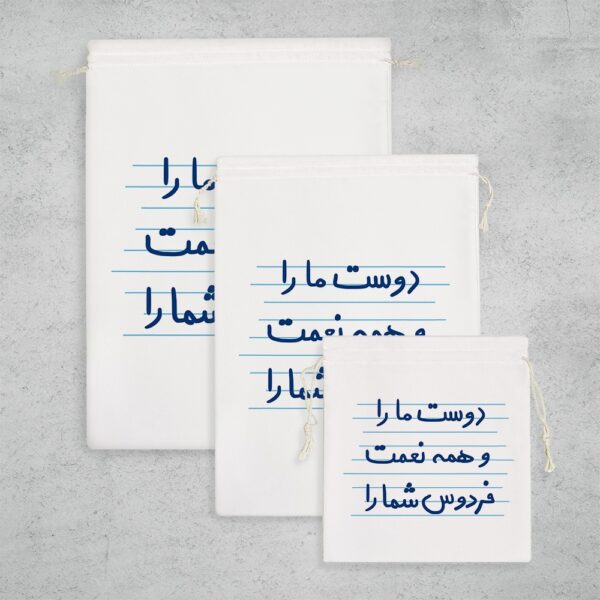 ما را
مت
شما را
دوست ما را
و همه نعمت
شما را
دوست ما را
و همه نعمت
فردوس شما را